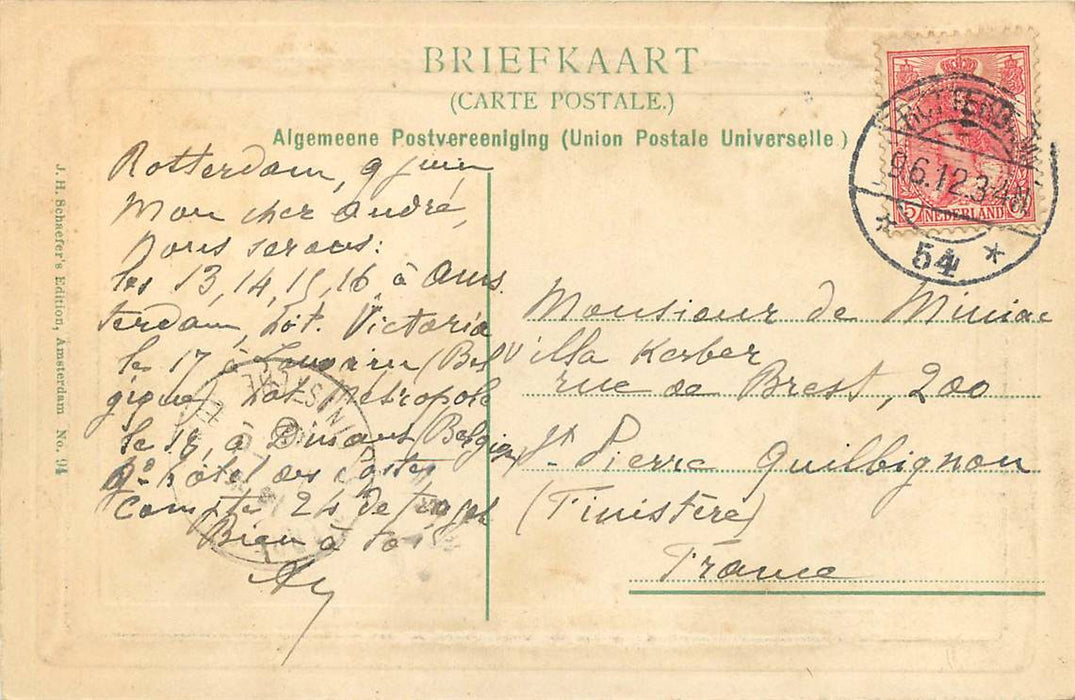 BRIEFKAART
(CARTE POSTALE.)
Algemeene Postvereeniging (Union Postale Universelle)
Rotterdam, 9 juin
Mon cher André,
Nous serons:
les 13, 14, 15, 16 à Ams
terdam, hôt. Victoria
le 17 à (Bel
gique) hôt. Métropole
le 18, à Dinant (Belgique)
gd hôtel des Postes
Compte 24
Bien à toi
Monsieur de Miniac
Villa Kerber
rue de Brest, 200
St. Pierre Quilbignon
(Finistère)
France
J. H. Schaefer's Edition, Amsterdam No. 94
ROTTERDAM
9.6.12.3-4N
54
5 NEDERLAND
FINISTERE